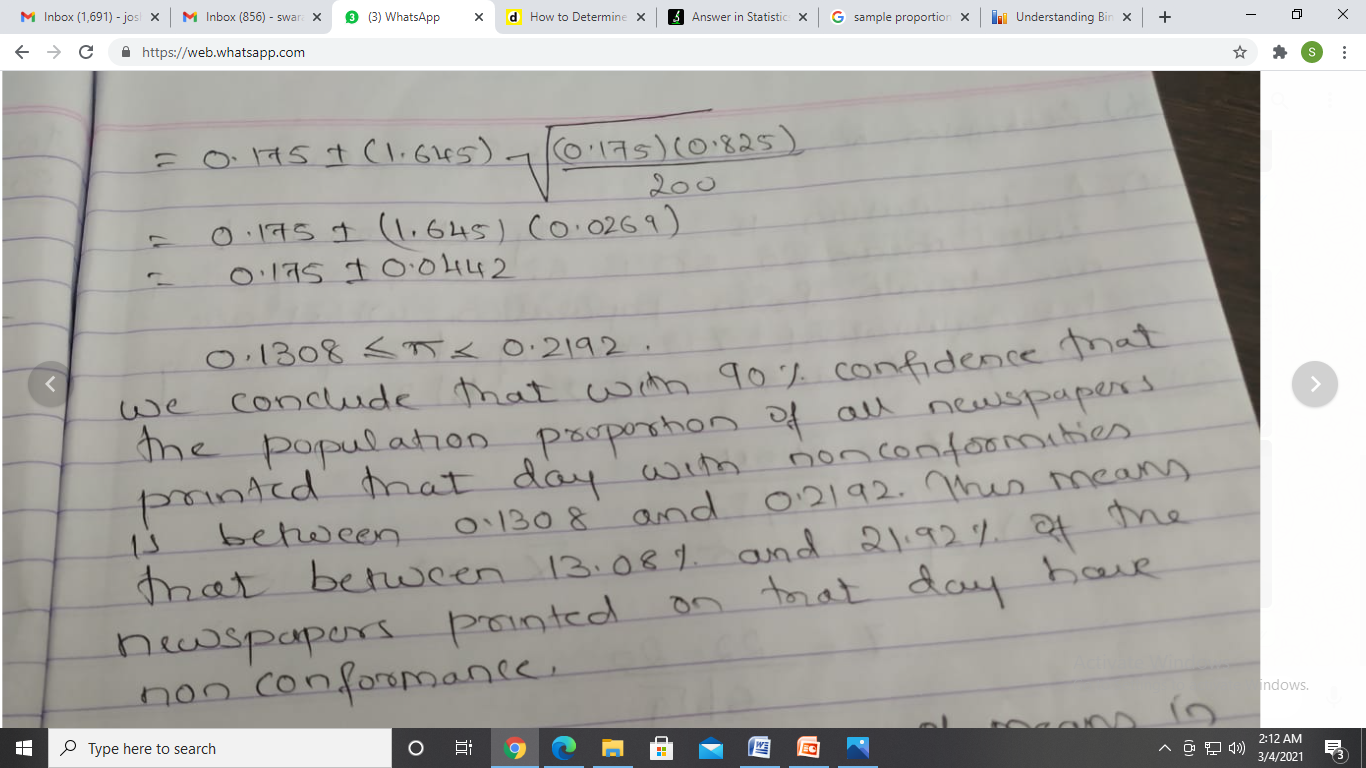 Inbox (1,691) - josl
Inbox (856) - swara
(3) WhatsApp
How to Determine
Answer in Statistic
sample proportion
Understanding Bin
https://web.whatsapp.com
S
= 0.175 ± (1.645) √(0.175)(0.825)
200
= 0.175 ± (1.645) (0.0269)
= 0.175 ± 0.0442
0.1308 ≤ π ≤ 0.2192.
we conclude that with 90% confidence that
the population proportion of all newspapers
printed that day with nonconformities
is between 0.1308 and 0.2192. This means
that between 13.08% and 21.92% of the
newspapers printed on that day have
non conformance.
means in
Activate Windows
indows.
Type here to search
2:12 AM
3/4/2021
3